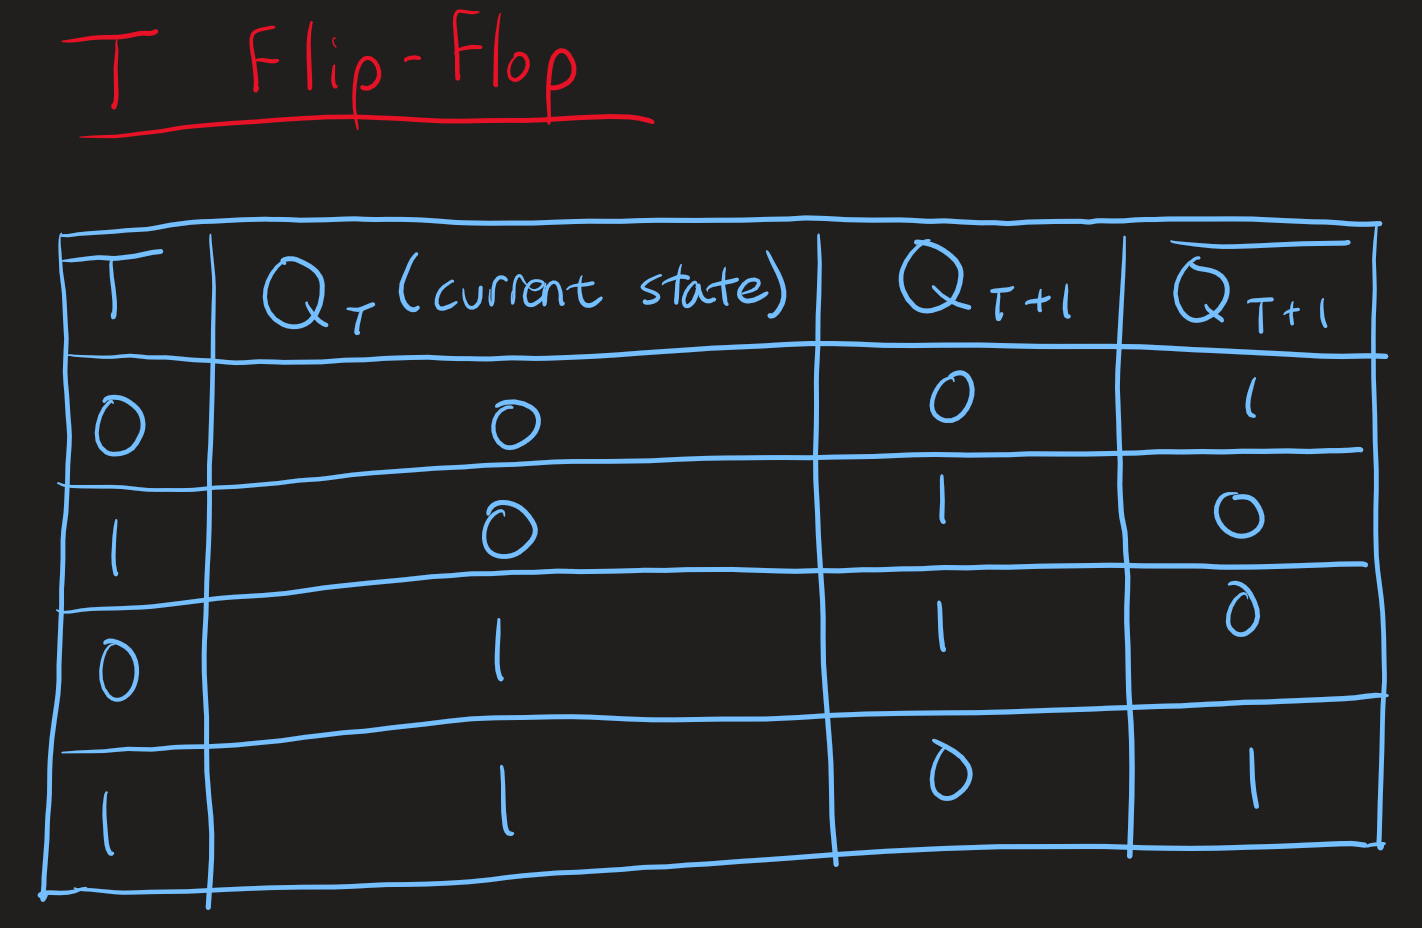 T Flip-Flop
T Q_T (current state) Q_T+1 Q̅_T+1
0 0 0 1
1 0 1 0
0 1 1 0
1 1 0 1